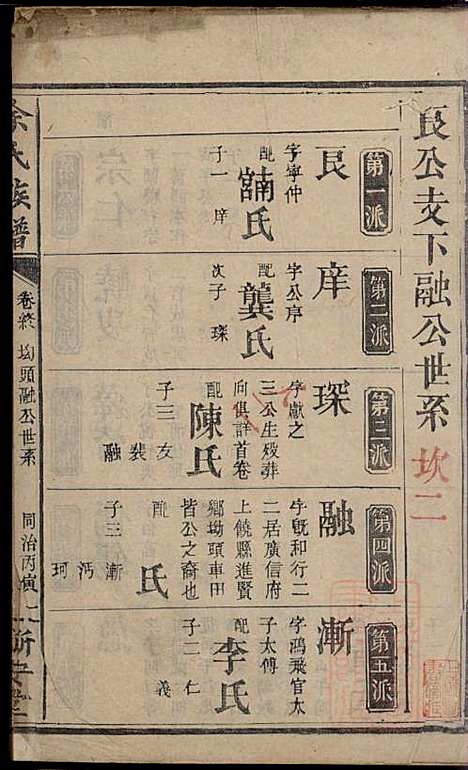 艮公支下融公世系
坎二
第一派
艮
字寧仲
配
氏
子一
庠
第二派
庠
字公序
配龔氏
次子
琛
第三派
琛
字獻之
三公生歿葬
向俱詳首卷
配陳氏
子三
友
裴
融
第四派
融
字旣和行二
二居廣信府
上饒縣進賢
鄉坳頭車田
皆公之裔也
配
氏
子三
漸
沔
珂
第五派
漸
字鴻飛官太
子太傅
配李氏
子二
仁
義
余氏族譜
卷終
坳頭融公世系
同治丙寅
新安堂